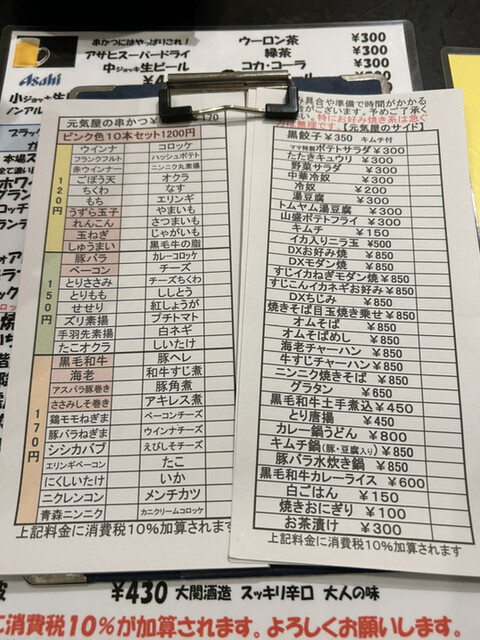 串かつにはやっぱりこれ!
アサヒスーパードライ
中ジョッキ生ビール
Asahi
ウーロン茶 ¥300
緑茶 ¥300
コカ・コーラ ¥300
元気屋の串かつ
170
ピンク色10本セット1200円
120円
ウインナ コロッケ
フランクフルト ハッシュポテト
赤ウインナー ニンニク丸素揚
ごぼう天 オクラ
ちくわ なす
もち エリンギ
うずら玉子 やまいも
れんこん さつまいも
玉ねぎ じゃがいも
しゅうまい 黒毛牛の脂
150円
豚バラ カレーコロッケ
ベーコン チーズ
とりささみ チーズちくわ
とりもも ししとう
せせり 紅しょうが
ズリ素揚 プチトマト
手羽先素揚 白ネギ
たこオクラ しいたけ
170円
黒毛和牛 豚ヘレ
海老 和牛すじ煮
アスパラ豚巻き 豚角煮
ささみしそ巻き アキレス煮
鶏モモねぎま ベーコンチーズ
豚バラねぎま ウインナチーズ
シシカバブ えびしそチーズ
エリンギベーコン たこ
にくしいたけ いか
ニクレンコン メンチカツ
青森ニンニク カニクリームコロッケ
上記料金に消費税10%加算されます
具合や準備で時間がかかる
合がございます。予めご了承く
特にお好み焼き系は急ぐ
【元気屋のサイド】
黒餃子 ¥350 キムチ付
ママ特製ポテトサラダ ¥300
たたきキュウリ ¥300
野菜サラダ ¥300
中華冷奴 ¥300
冷奴 ¥200
湯豆腐 ¥300
トムヤム湯豆腐 ¥300
山盛ポテトフライ ¥300
キムチ ¥150
イカ入りニラ玉 ¥500
DXお好み焼 ¥850
DXモダン焼 ¥850
すじイカねぎモダン焼 ¥850
すじこんイカネギお好み ¥850
DXちぢみ ¥850
焼きそば目玉焼き乗せ ¥850
オムそば ¥850
オムそばめし ¥850
海老チャーハン ¥850
牛すじチャーハン ¥850
ニンニク焼きそば ¥850
グラタン ¥650
黒毛和牛土手煮込 ¥450
とり唐揚 ¥450
カレー鍋うどん ¥800
キムチ鍋(豚・豆腐入り) ¥850
豚バラ水炊き鍋 ¥850
黒毛和牛カレーライス ¥600
白ごはん ¥150
焼きおにぎり ¥100
お茶漬け ¥300
上記料金に消費税10%加算されます
¥430 大関酒造 スッキリ辛口 大人の味
に消費税10%が加算されます。よろしくお願いします。